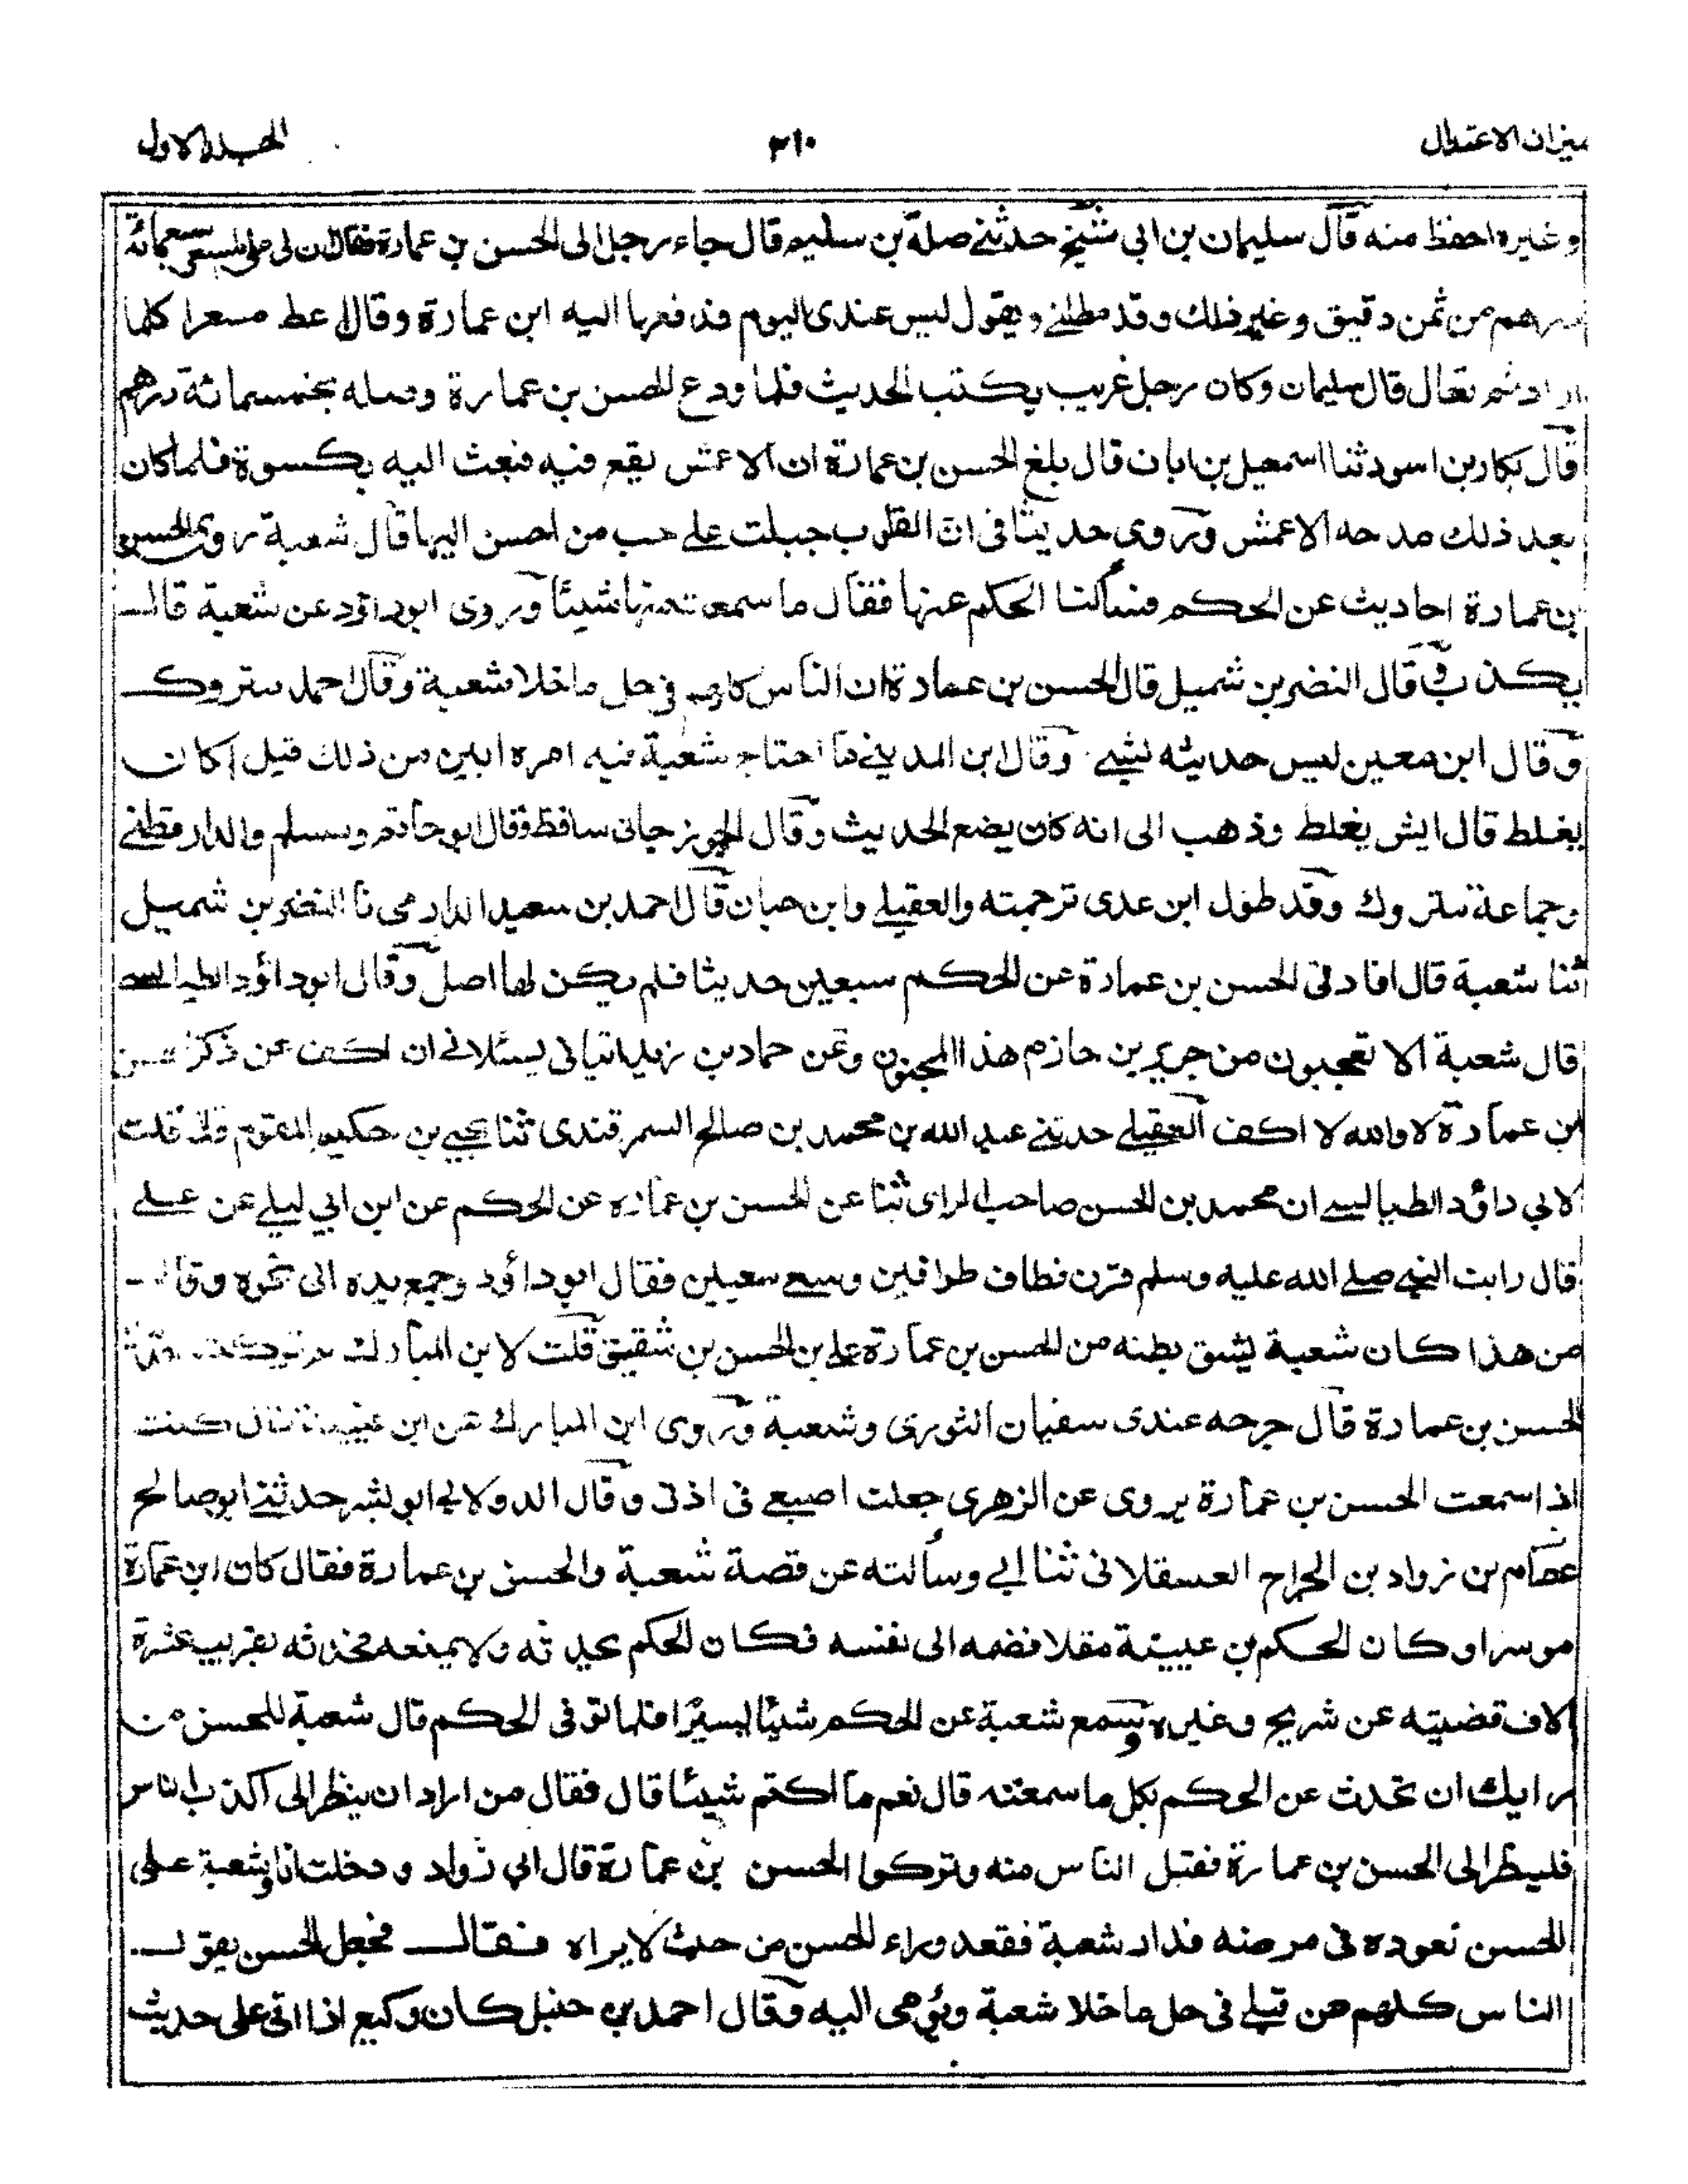 ميزان الاعتدال
٢١٠
المجلد الاول
وغيره احفظ منه قال سليمان بن ابى شيخ حدثنى صلة بن سليم قال جاء رجل الى الحسن بن عمارة فقال ان لى على مسعر سبعمائة
درهم من ثمن دقيق وغير ذلك وقد مطلنى ويقول ليس عندى اليوم فدفعها اليه ابن عمارة وقال اعط مسعرا كلما
اراد ثم تعال قال سليمان وكان رجل غريب يكتب الحديث فلما ودع الحسن بن عمارة وصله بخمسمائة درهم
قال بكار بن اسود ثنا اسمعيل بن ابان قال بلغ الحسن بن عمارة ان الاعمش يقع فيه فبعث اليه بكسوة فلما كان
بعد ذلك مدحه الاعمش وروى حديثا فى ان القلوب جبلت على حب من احسن اليها قال شعبة روى الحسن
بن عمارة احاديث عن الحكم فسألنا الحكم عنها فقال ما سمعت منها شيئا وروى ابو داؤد عن شعبة قال
يكذب وقال النضر بن شميل قال الحسن بن عمارة ان الناس كلهم فى حل ما خلا شعبة وقال احمد متروك
وقال ابن معين ليس حديثه بشيء وقال ابن المدينى ما احتاج شعبة فيه امره ابين من ذلك قيل اكان
يغلط قال ايش يغلط وذهب الى انه كان يضع الحديث وقال الجوزجانى ساقط وقال ابو حاتم ومسلم والدارقطنى
وجماعة متروك وقد طول ابن عدى ترجمته والعقيلى وابن حبان قال احمد بن سعيد الدارمى نا النضر بن شميل
ثنا شعبة قال افادنى الحسن بن عمارة عن الحكم سبعين حديثا فلم يكن لها اصل وقال ابو داؤد الطيالسى
قال شعبة الا تعجبون من جرير بن حازم هذا المجنون وعن حماد بن زيد اتيانى يسئلانى ان اكف عن ذكر الحسن
بن عمارة لا والله لا اكف العقيلى حدثنى عبد الله بن محمد بن صالح السمرقندى ثنا يحيى بن حكيم المقوم قال قلت
لابى داؤد الطيالسى ان محمد بن الحسن صاحب الراى ثنا عن الحسن بن عمارة عن الحكم عن ابن ابى ليلى عن على
قال رايت النبى صلى الله عليه وسلم قرن فطاف طوافين وسعى سعيين فقال ابو داؤد وجمع يده الى نحره وقال
من هذا كان شعبة يشق بطنه من الحسن بن عمارة على بن الحسن بن شقيق قلت لابن المبارك لم تركت حديث
الحسن بن عمارة قال جرحه عندى سفيان الثورى وشعبة وروى ابن المبارك عن ابن عيينة قال كنت
اذا سمعت الحسن بن عمارة يروى عن الزهرى جعلت اصبعى فى اذنى وقال الدولابى ابو بشر حدثنى ابو صالح
عصام بن زواد بن الجراح العسقلانى ثنا ابى وسألته عن قصة شعبة والحسن بن عمارة فقال كان ابن عمارة
موسرا وكان الحكم بن عيينة مقلا فضمه الى نفسه فكان الحكم يحدثه ولا يمنعه فحدثه بقريب عشرة
الاف قضيته عن شريح وغيره وسمع شعبة عن الحكم شيئا يسيرا فلما توفى الحكم قال شعبة للحسن من
رايك ان تحدث عن الحكم بكل ما سمعته قال نعم ما اكتم شيئا قال فقال من اراد ان ينظر الى اكذب الناس
فلينظر الى الحسن بن عمارة فقبل الناس منه وتركوا الحسن بن عمارة قال ابى زواد ودخلت انا وشعبة على
الحسن نعوده فى مرضه فدار شعبة فقعد وراء الحسن من حيث لا يراه فقال فجعل الحسن يقول
الناس كلهم من قبلى فى حل ما خلا شعبة ويؤمى اليه وقال احمد بن حنبل كان وكيع اذا اتى على حديث